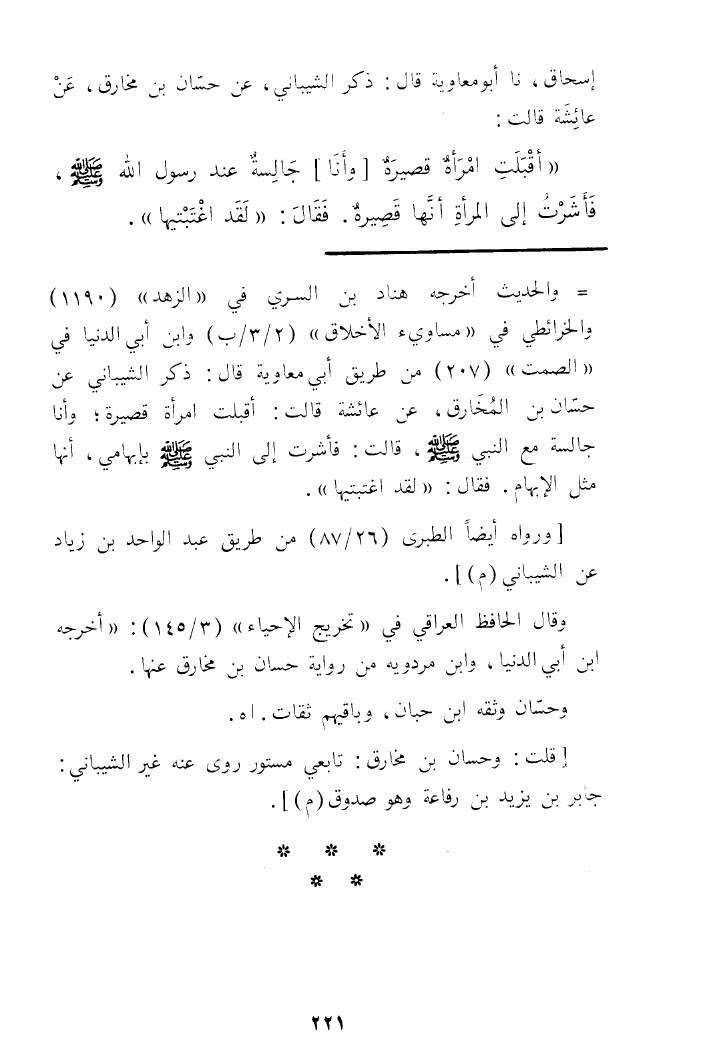 إسحاق، نا أبو معاوية قال: ذكر الشيباني، عن حسّان بن مخارق، عَنْ
عائِشَة قالت:
« أقْبَلَتِ امْرَأةٌ قصيرَةٌ [ وأَنَا ] جَالِسةٌ عند رسول الله ﷺ ،
فَأَشَرْتُ إلى المرأةِ أنَّها قَصِيرةٌ. فَقَالَ: « لَقَد اغْتَبْتيها ».
= والحديث أخرجه هناد بن السري في «الزهد» (١١٩٠)
والخرائطي في «مساويء الأخلاق» (٢/٣/ب) وابن أبي الدنيا في
«الصمت» (٢٠٧) من طريق أبي معاوية قال: ذكر الشيباني عن
حسّان بن المُخَارق، عن عائشة قالت: أقبلت امرأة قصيرة؛ وأنا
جالسة مع النبي ﷺ ، قالت: فأشرت إلى النبي ﷺ بإبهامي، أنها
مثل الإبهام. فقال: « لقد اغتبتيها ».
[ ورواه أيضاً الطبرى (٨٧/٢٦) من طريق عبد الواحد بن زياد
عن الشيباني (م) ].
وقال الحافظ العراقي في « تخريج الإحياء» (١٤٥/٣): «أخرجه
ابن أبي الدنيا، وابن مردويه من رواية حسان بن مخارق عنها.
وحسّان وثقه ابن حبان، وباقيهم ثقات. اه.
[ قلت: وحسان بن مخارق: تابعي مستور روى عنه غير الشيباني:
جابر بن يزيد بن رفاعة وهو صدوق (م) ].
* * *
* *
٢٢١